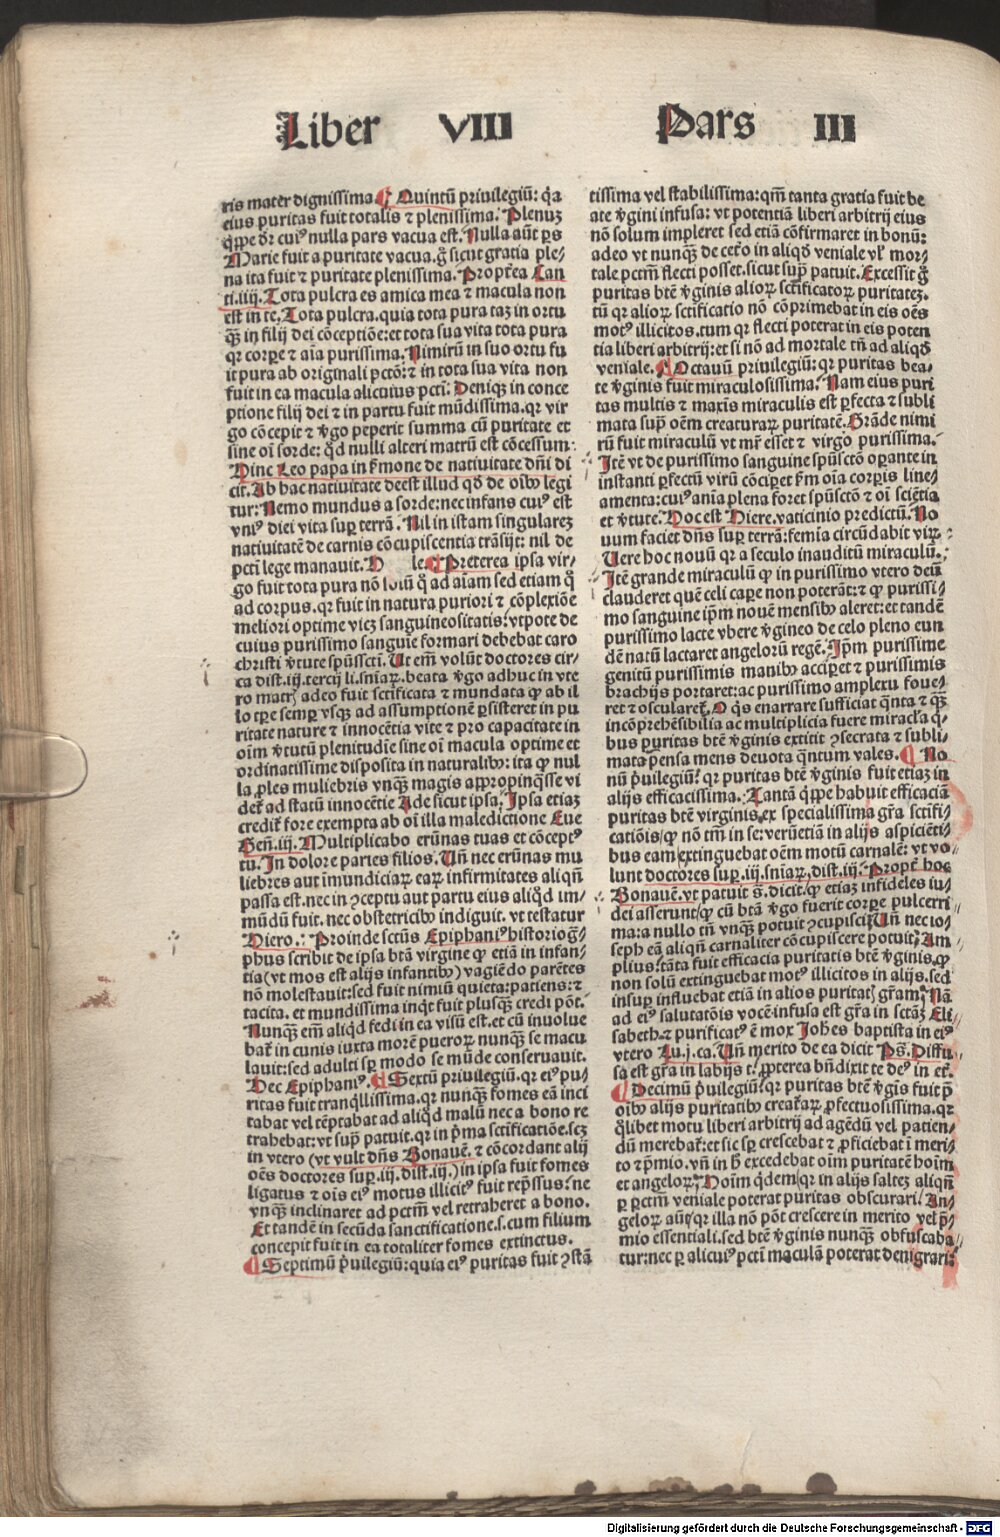 Liber VIII Pars III
ris mater dignissima. ¶ Quintū priuilegiū: q̄a
eius puritas fuit totalis ⁊ plenissima. Plenuꝫ
q̄ppe dr̄ cui⁹ nulla pars vacua est. Nulla aūt ꝑs
Marie fuit a puritate vacua. g̊ sicut gratia ple-
na ita fuit ⁊ puritate plenissima. Propt̄ea Can
ti. iiij. Tota pulcra es amica mea ⁊ macula non
est in te, Tota pulcra. quia tota pura taꝫ in ortu
q̄ꝫ in filij dei cōceptiōe: et tota sua vita tota pura
qꝛ corpe ⁊ aīa purissima. Nimirū in suo ortu fu
it pura ab originali pctō: ⁊ in tota sua vita non
fuit in ea macula alicuius pcti: Deniqꝫ in conce
ptione filij dei ⁊ in partu fuit mūdissima. qꝛ vir
go cōcepit ⁊ v̄go peperit summa cū puritate et
sine oī sorde: qd̄ nulli alteri matrū est cōcessum:
Hinc Leo papa in s̄mone de natiuitate dn̄i di
cit. Ab hac natiuitate deest illud qd̄ de oībꝰ legi
tur: Nemo mundus a sorde: nec infans cui⁹ est
vni⁹ diei vita suꝑ terrā. Nil in istam singulareꝫ
natiuitatē de carnis cōcupiscentia trāsijt: nil de
pcti lege manauit. le. ¶ Preterea ipsa vir-
go fuit tota pura nō q̊ ad aīam sed etiam q̊
ad corpus. qꝛ fuit in natura puriori ⁊ cōplexiōe
meliori optime vicꝫ sanguineositatis: vtpote de
cuius purissimo sanguīe formari debebat caro
christi v̄tute spūssctī. Ut em̄ volūt doctores cir-
ca dist. iij. tercij li. sn̄iaꝝ. beata v̄go adhuc in vte
ro matr̄ adeo fuit sctificata ⁊ mundata ꝙ ab il
lo tꝑe semꝑ vsqꝫ ad assumptionē ꝑsisteret in pu
ritate nature ⁊ innocētia vite ⁊ pro capacitate in
oīm v̄tutū plenitudīe sine oī macula optime et
ordinatissime disposita in naturalibꝰ: ita ꝙ nul
la ꝓles muliebris vnqꝫ magis appropinq̄sse vi
det̄ ad statū innocētie Ade sicut ipsa. Ipsa etiaꝫ
credit̄ fore exempta ab oī illa maledictione Eue
Geñ. iij. Multiplicabo erūnas tuas et cōcept⁹
tu. In dolore paries filios. Uñ nec erūnas mu
liebres aut īmundiciaꝝ eaꝝ infirmitates aliqñ
passa est. nec in ꝯceptu aut partu eius aliqd̄ im-
mūdū fuit. nec obstetricibꝰ indiguit. vt testatur
Hiero. Proinde sctūs Epiphani⁹ historiog̊-
phus scribit de ipsa bt̄ā virgine ꝙ etiā in infan-
tia (vt mos est alijs infantibꝰ) vagiēdo parētes
nō molestauit: sed fuit nimiū quieta: patiens: ⁊
tacita. et mundissima inq̄t fuit plusqꝫ credi pōt.
Nunqꝫ em̄ aliqd̄ fedi in ea visū est. et cū inuolue
bat̄ in cunis iuxta morē pueroꝝ nunqꝫ se macu
lauit: sed adulti sꝑ modo se mūde conseruauit.
Hec Epiphani⁹. ¶ Sextū priuilegiū. qꝛ ei⁹ pu-
ritas fuit tranq̄llissima. qꝛ nunqꝫ fomes eā inci
tabat vel tēptabat ad aliqd̄ malū nec a bono re
trahebat: vt supͣ patuit. qꝛ in pͥma sctificatiōe. scꝫ
in vtero (vt vult dn̄s Bonauē. ⁊ cōcordant alij
oēs doctores suꝑ. iij. dist. iij.) in ipsa fuit fomes
ligatus ⁊ oīs ei⁹ motus illicit⁹ fuit rep̄ssus: ne
vnqꝫ inclinaret ad pctm̄ vel retraheret a bono.
Et tandē in secūda sanctificatione. s. cum filium
concepit fuit in ea totaliter fomes extinctus.
¶ Septimū pͥuilegiū: quia ei⁹ puritas fuit ꝯstā
tissima vel stabilissima: qm̄ tanta gratia fuit be
ate v̄gini infusa: vt potentiā liberi arbitrij eius
nō solum impleret sed etiā cōfirmaret in bonū:
adeo vt nunqꝫ de cet̄o in aliqd̄ veniale vl̄ mor-
tale pctm̄ flecti posset. sicut supͣ patuit. Excessit g̊
puritas bt̄e v̄ginis alioꝝ sctificatoꝝ puritateꝫ.
tū qꝛ alioꝝ sctificatio nō cōprimebat in eis oēs
mot⁹ illicitos. tum qꝛ flecti poterat in eis poten
tia liberi arbitrij: et si nō ad mortale tñ ad aliqd̄
veniale. ¶ Octauū priuilegiū: qꝛ puritas bea-
te v̄ginis fuit miraculosissima. Nam eius puri
tas multis ⁊ maxīs miraculis est ꝑfecta ⁊ subli
mata supͣ oēm creaturaꝝ puritatē. Grāde nimi
rū fuit miraculū vt mr̄ esset ⁊ virgo purissima.
Itē vt de purissimo sanguine spūsctō oꝑante in
instanti ꝑfectū virū cōciꝑet s̄m oīa corꝑis line-
amenta: cui⁹ anīa plena foret spūsctō ⁊ oī sciētia
et v̄tute. Hoc est Hiere. vaticinio predictū. No
uum faciet dn̄s suꝑ terrā: femīa circūdabit viꝝ.
Uere hoc nouū qꝛ a seculo inauditū miraculū.
Itē grande miraculū ꝙ in purissimo vtero deū
clauderet quē celi caꝑe non poterāt: ⁊ ꝙ purissi-
mo sanguine ip̄m nouē mensibꝰ aleret: et tandē
purissimo lacte vbere v̄gineo de celo pleno eun
dē natū lactaret angeloꝝ regē. Ip̄m purissime
genitū purissimis manibꝰ acciꝑet ⁊ purissimis
brachijs portaret: ac purissimo amplexu foue-
ret ⁊ oscularet̄. O q̊s enarrare sufficiat q̄nta ⁊ qꝫ
incōprehēsibilia ac multiplicia fuere miracl̄a q̄-
bus puritas bt̄e v̄ginis extitit ꝯsecrata ⁊ subli-
mata pensa mens deuota q̄ntum vales. ¶ No
nū pͥuilegiū: qꝛ puritas bt̄e v̄ginis fuit etiaꝫ in
alijs efficacissima. Tantā q̄ppe habuit efficaciā
puritas bt̄e virginis. ex specialissima gr̄a sctifi-
catiōis: ꝙ nō tm̄ in se: verūetiā in alijs aspiciēti-
bus eam extinguebat oēm motū carnalē: vt vo-
lunt doctores suꝑ. iij. sn̄iaꝝ, dist. iij. Propt̄ hoc
Bonauē. vt patuit s̄. dicit: ꝙ etiaꝫ infideles iu-
dei asserunt: ꝙ cū bt̄ā v̄go fuerit corꝑe pulcerri
ma: a nullo tñ vnqꝫ potuit ꝯcupisci: Uñ nec io-
seph eā aliqñ carnaliter cōcupiscere potuit; Am-
plius: tāta fuit efficacia puritatis bt̄e v̄ginis. ꝙ
non solū extinguebat mot⁹ illicitos in alijs. sed
insuꝑ influebat etiā in alios puritatꝫ gr̄am. Nā
ad ei⁹ salutatōis vocē infusa est gr̄a in sctāꝫ Eli-
sabeth. ⁊ purificat⁹ ē mox Joh̄es baptista in ei⁹
vtero Lu. j. ca. Uñ merito de ea dicit Ps̄. Diffu-
sa est gr̄a in labijs t. ꝓpterea bñdixit te de⁹ in et̄.
¶ Decimū pͥuilegiū: qꝛ puritas bt̄e v̄gīs fuit p̄
oībꝰ alijs puritatibꝰ creat̄aꝝ ꝓfectuosissima. qꝛ
q̊libet motu liberi arbitrij ad agēdū vel patien-
dū merebat̄: et sic sꝑ crescebat ⁊ ꝓficiebat ī meri-
to ⁊ pͥmio. vñ in h̊ excedebat oīm puritatē hoīm
et angeloꝝ; Hoīm q̄dem: qꝛ in alijs salteꝫ aliqñ
ꝑ pctm̄ veniale poterat puritas obscurari. An-
geloꝝ aūt: qꝛ illa nō pōt crescere in merito vel p̄-
mio essentiali. sed bt̄e v̄ginis nunqꝫ obfuscaba-
tur: nec ꝑ alicui⁹ pcti maculā poterat denigrari:
Digitalisierung gefördert durch die Deutsche Forschungsgemeinschaft - DFG